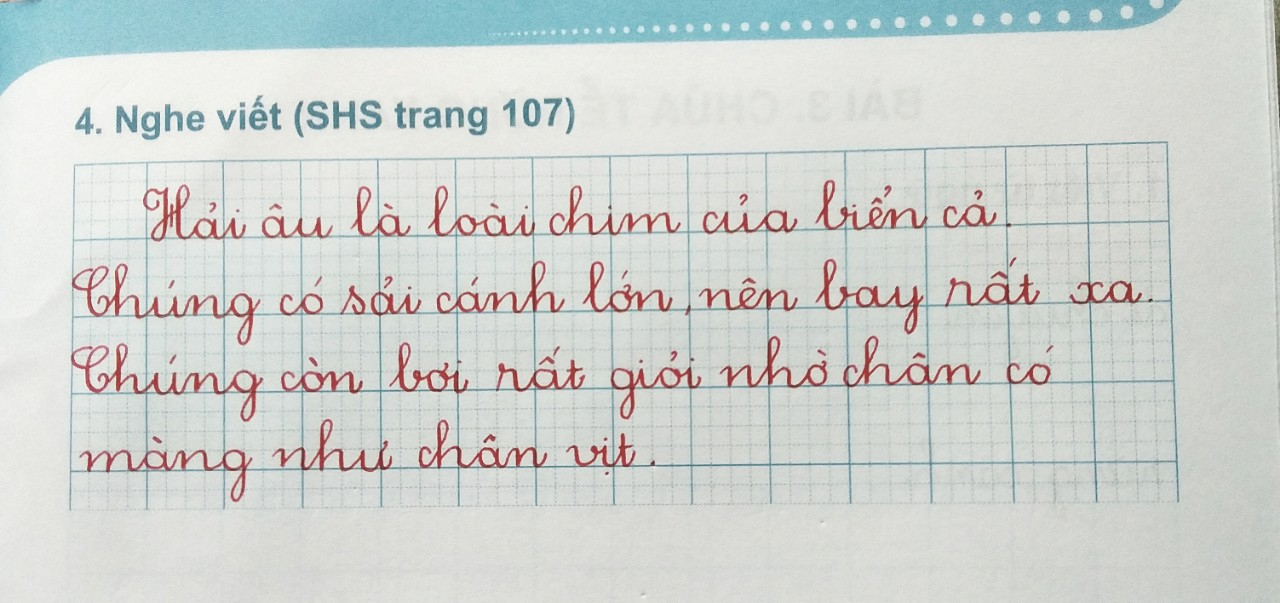 4. Nghe viết (SHS trang 107)
Hải âu là loài chim của biển cả.
Chúng có sải cánh lớn, nên bay rất xa.
Chúng còn bơi rất giỏi nhờ chân có
màng như chân vịt.